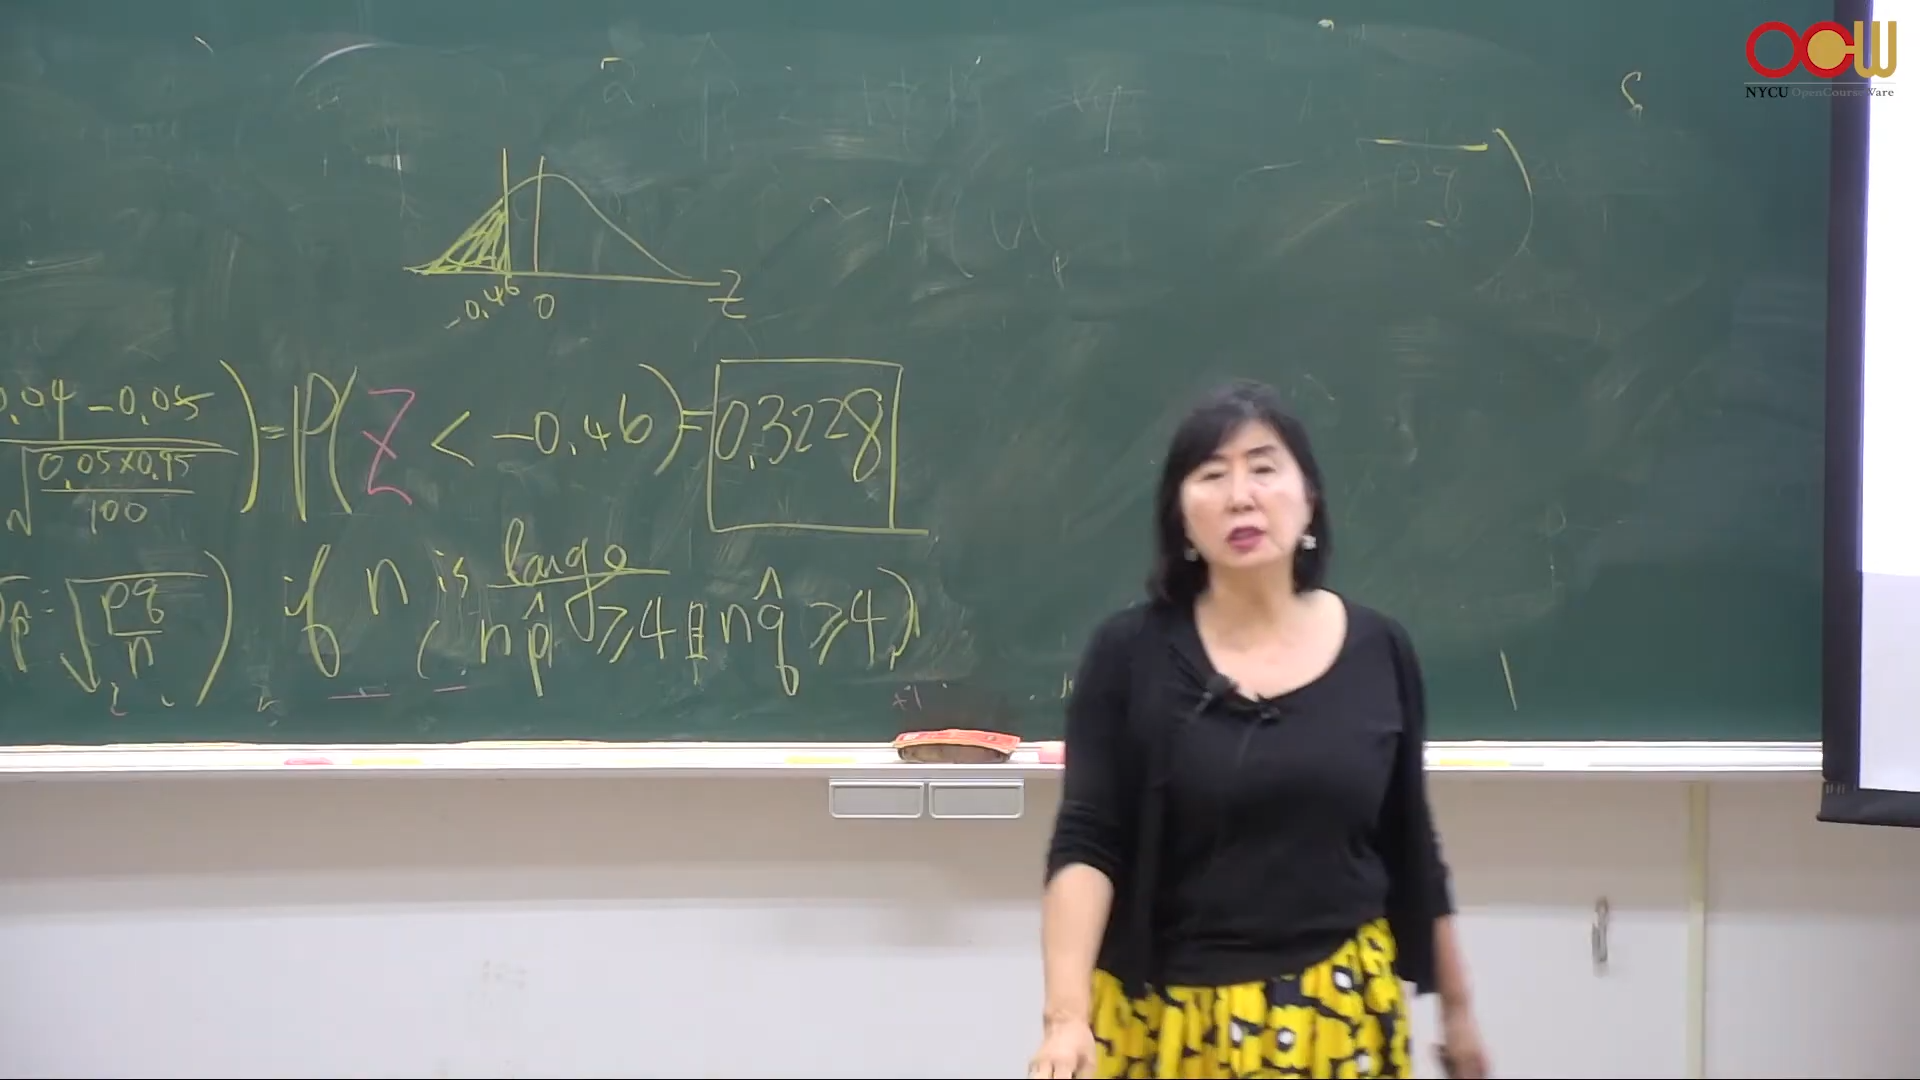 OCW
NYCU OpenCourseWare
pq
-0.46 0 Z
0.04 - 0.05
√(0.05×0.95/100)
) = P(Z < -0.46) = 0.3228
σp̂ = √(pq/n) ) if n is large
( np̂ ≥ 4 且 nq̂ ≥ 4 )